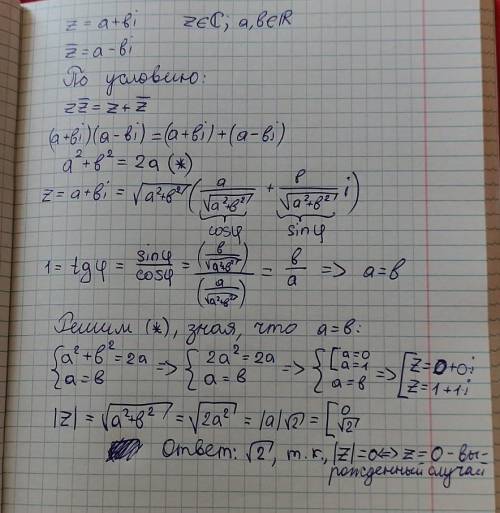 z = a+bi z∈ℂ; a,b∈ℝ
z̅ = a-bi
По условию:
zz̅ = z+z̅
(a+bi)(a-bi)=(a+bi)+(a-bi)
a²+b²=2a (*)
z = a+bi = √(a²+b²) (a/√(a²+b²) + b/√(a²+b²) i)
cosφ sinφ
1 = tgφ = sinφ/cosφ = (b/√(a²+b²))/(a/√(a²+b²)) = b/a => a=b
Решим (*), зная, что a=b:
{a²+b²=2a, a=b => {2a²=2a, a=b => {[a=0, a=1, a=b => [z=0+0i, z=1+1i
|z| = √(a²+b²) = √(2a²) = |a|√2 = [0, √2
Ответ: √2, т.к. |z|=0<=> z=0 - вы-
рожденный случай